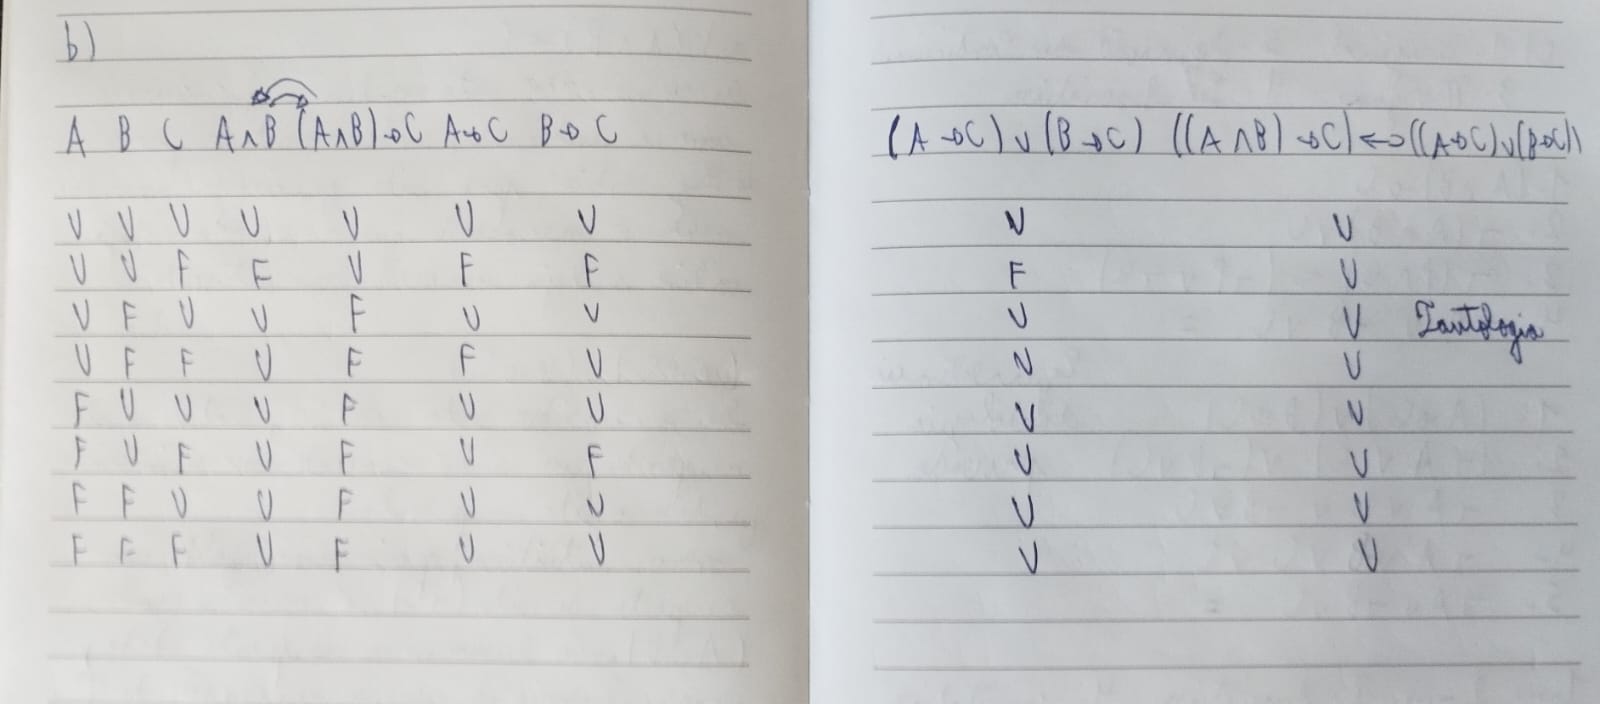 b)
A B C A∧B (A∧B)→C A→C B→C
V V V V V V V
V V F F V F F
V F V V F V V
V F F V F F V
F V V V F V V
F V F V F V F
F F V V F V V
F F F V F V V
(A→C)∨(B→C) ((A∧B)→C)↔((A→C)∨(B→C))
V V
F V
V V Tautologia
V V
V V
V V
V V
V V